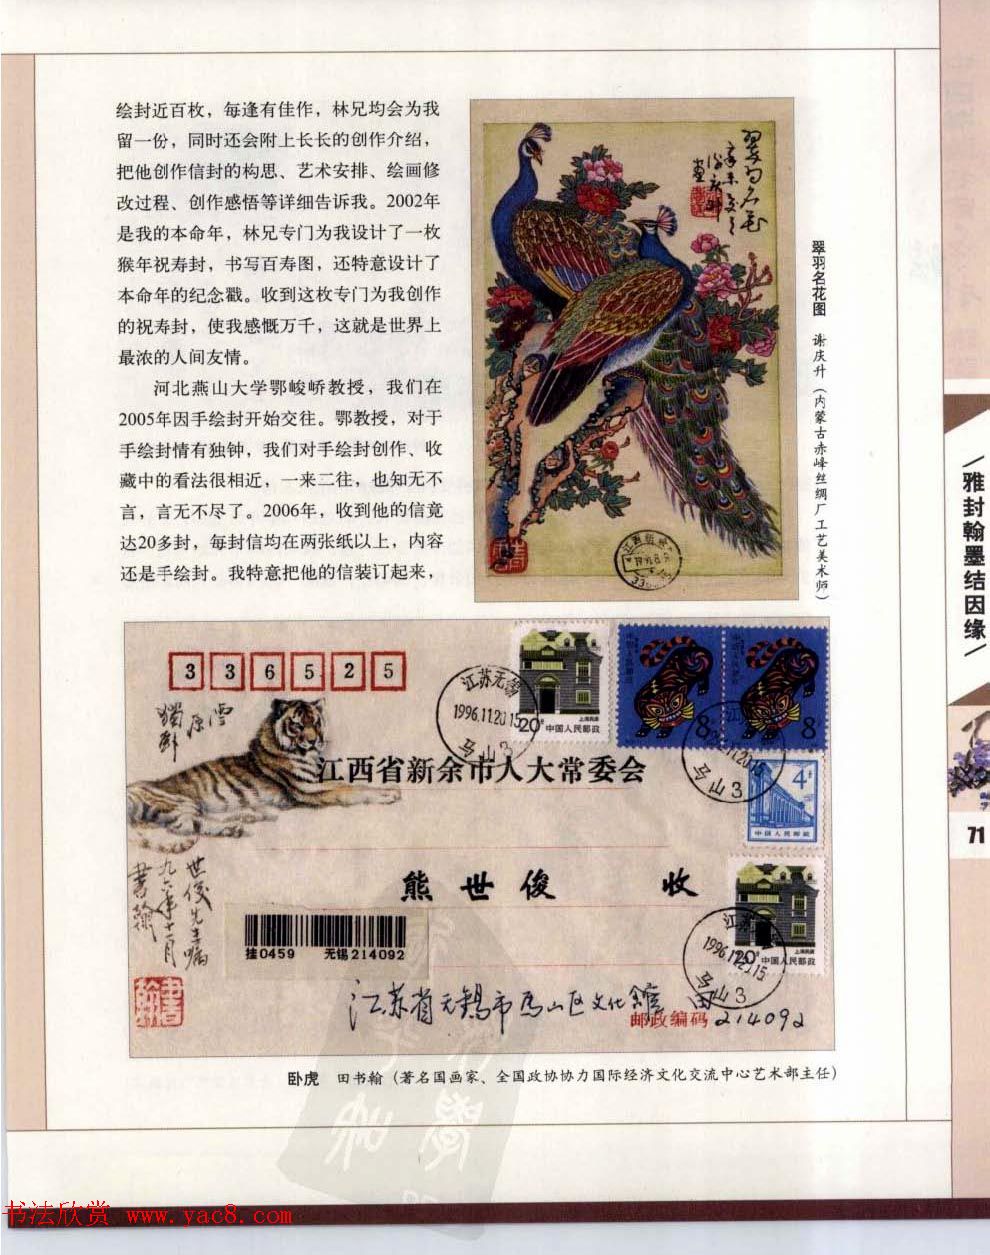 绘封近百枚，每逢有佳作，林兄均会为我
留一份，同时还会附上长长的创作介绍，
把他创作信封的构思、艺术安排、绘画修
改过程、创作感悟等详细告诉我。2002年
是我的本命年，林兄专门为我设计了一枚
猴年祝寿封，书写百寿图，还特意设计了
本命年的纪念戳。收到这枚专门为我创作
的祝寿封，使我感慨万千，这就是世界上
最浓的人间友情。
河北燕山大学鄂峻峤教授，我们在
2005年因手绘封开始交往。鄂教授，对于
手绘封情有独钟，我们对手绘封创作、收
藏中的看法很相近，一来二往，也知无不
言，言无不尽了。2006年，收到他的信竟
达20多封，每封信均在两张纸以上，内容
还是手绘封。我特意把他的信装订起来，
翠羽名花
翠羽名花图 谢庆升（内蒙古赤峰丝绸厂工艺美术师）
雅封翰墨结因缘
71
336525
江苏无锡
1996.11.20.15
马山3
20分
上海民居
中国人民邮政
8
8
4分
中国人民邮政
江西省新余市人大常委会
熊世俊 收
世俊先生嘱
九六年十一月
书翰
挂0459 无锡214092
20分
中国人民邮政
1996.11.20.15
马山3
江苏省无锡市马山区文化馆 田
邮政编码 214092
卧虎 田书翰（著名国画家、全国政协协力国际经济文化交流中心艺术部主任）
书法欣赏 www.yac8.com